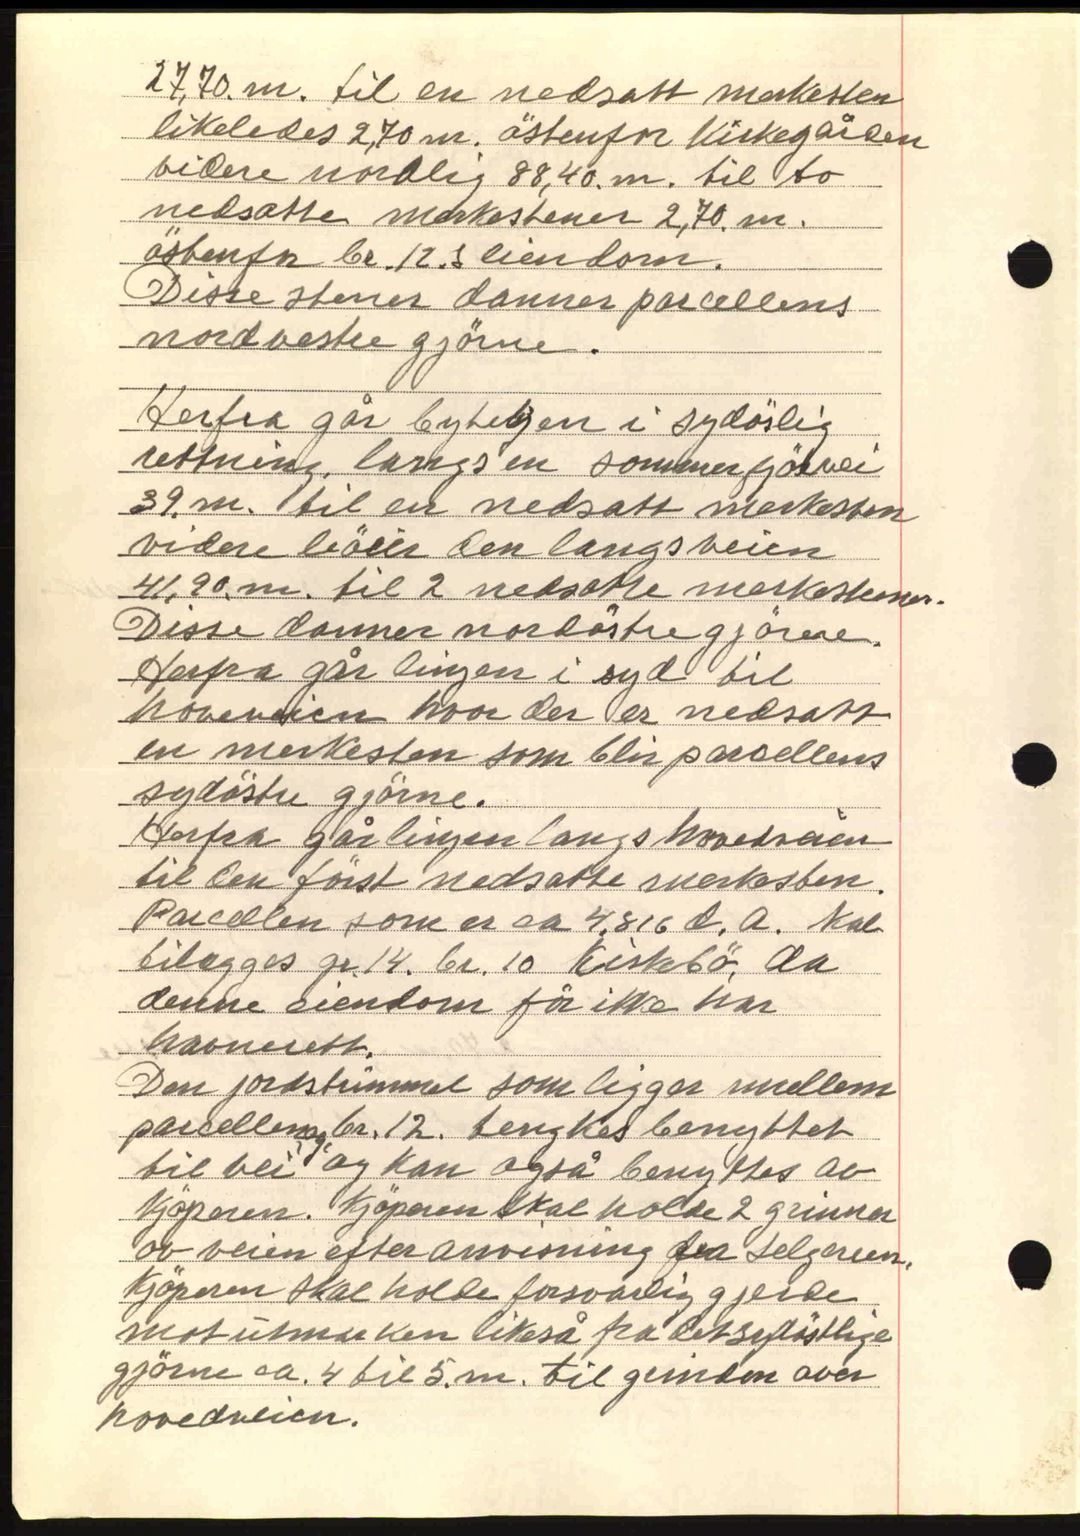 27,70. m. til en nedsatt merkesten
likeledes 2,70 m. östenfor Kirkegården
videre nordlig 88,40. m. til to
nedsatte merkestener 2,70. m.
östenfor br. 12.s eiendom.
Disse stener danner parcellens
nordvestre gjörne.
Herfra går bytelijen i sydöslig
rettning. langs en sommerfjösvei
39. m. til en nedsatt merkesten
videre den langs veien
41,90. m. til 2 nedsatte merkestener.
Disse danner nordöstre gjörne.
Herfra går linjen i syd til
hoveveien hvor der er nedsatt
en merkesten som blir parcellens
sydöstre gjörne.
Herfra går linjen langs hovedveien
til den först nedsatte merkesten.
Parcellen som er ca 4,816 d. a. skal
tilegges gr. 14. br. 10 Kirkebö, da
denne eiendom för ikke har
havnerett.
Den jordstrimmel som ligger mellem
parcellen og br. 12. tengkes benyttet
til vei og kan også benyttes av
Kjöperen. Kjöperen skal holde 2 grinner
av veien efter anvisning fra selgeren.
Kjöperen skal holde forsvarlig gjerde
mot utmarken likeså fra det sydöstlige
gjörne ca. 4 til 5. m. til grinden over
hovedveien.